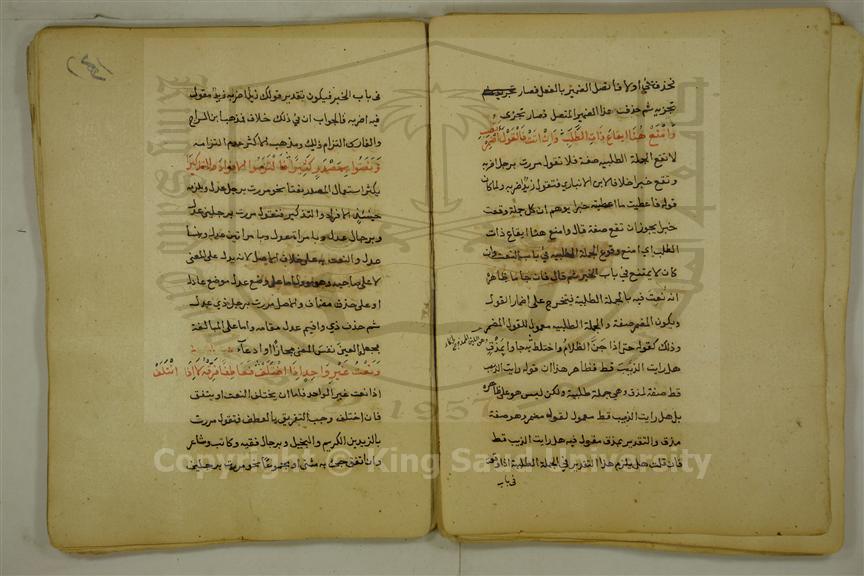 فحذف في اولا فاتصل الضمير بالفعل فصار
تجزيه ثم حذفت هذا الضمير المتصل فصار تجزى
وامنع هنا ايقاع ذات الطلب وان اتت فالقول اضمر تصب
لا تقع الجملة الطلبية صفة فلا تقول مررت برجل اضربه
وتقع خبرا خلافا لابن الانباري فتقول زيد اضربه ولما كان
قوله فاعطيت ما اعطيته خبرا يوهم ان كل جملة وقعت
خبرا يجوز ان تقع صفة قال وامنع هنا ايقاع ذات
الطلب اي امنع وقوع الجملة الطلبية في باب النعت وان
كان لا يمتنع في باب الخبر ثم قال فان جا ما ظاهره
انه نعت فيه بالجملة الطلبية فيتخرج على اضمار القول
ويكون المضمر صفة والجملة الطلبية معمول للقول المضمر
وذلك كقوله حتى اذا جن الظلام واختلط جاوا بمذق
هل رايت الذيب قط فظاهر هذا ان قوله هل رايت الذيب
قط صفة لمذق وهي جملة طلبية ولكن ليس هو على ظاهره
بل هل رايت الذيب قط معمول لقول مضمر وهو صفة
مذق والتقدير بمذق مقول فيه هل رايت الذيب قط
فان قلت هل يلزم هذا التقدير في الجملة الطلبية اذا وقعت
في باب
في باب الخبر فيكون تقدير قولك زيد اضربه زيد مقول
فيه اضربه فالجواب ان في ذلك خلاف فمذهب ابن السراج
والفارسي التزام ذلك ومذهب الاكثر عدم التزامه
ونعتوا بمصدر كثيرا فالتزموا الافراد والتذكيرا
يكثر استعمال المصدر نعتا نحو مررت برجل عدل ويلزم
حينئذ الافراد والتذكير فتقول مررت برجلين عدل
وبرجال عدل وبامراة عدل وبامراتين عدل وبنسا
عدل والنعت به على خلاف الاصل لانه يدل على المعنى
لا على صاحبه وهو موول اما على وضع عدل موضع عادل
او على حذف مضاف والاصل مررت برجل ذي عدل
ثم حذف ذي واقيم عدل مقامه واما على المبالغة
بجعل العين نفس المعنى مجازا او ادعاء
ونعت غير واحد اذا اختلف فعاطفا فرقه لا اذا ائتلف
اذا نعت غير الواحد فاما ان يختلف النعت او يتفق
فان اختلف وجب التفريق بالعطف فتقول مررت
بالزيدين الكريم والبخيل وبرجال فقيه وكاتب وشاعر
وان اتفق جي به مثنى او مجموعا نحو مررت برجلين
Copyright © King Saud University
1957